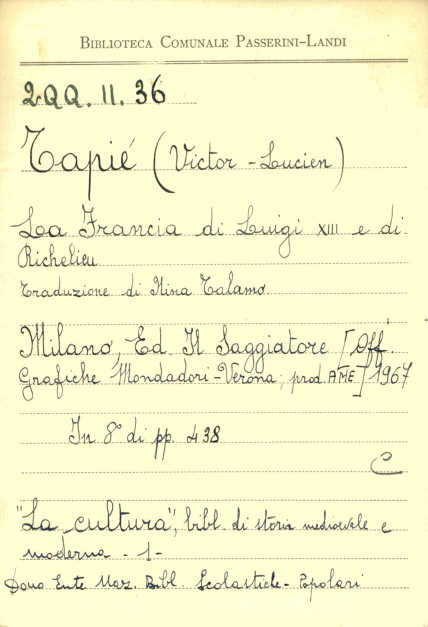 BIBLIOTECA COMUNALE PASSERINI-LANDI
2QQ. II. 36
Tapié (Victor-Lucien)
La Francia di Luigi XIII e di
Richelieu
Traduzione di Nina Talamo
Milano, Ed. Il Saggiatore [Off.
Grafiche Mondadori-Verona; prod. AME] 1967
In 8° di pp. 438
C
"La cultura", bibl. di storia medioevale e
moderna - 1 -
Dono Ente Naz. Bibl. Scolastiche-Popolari